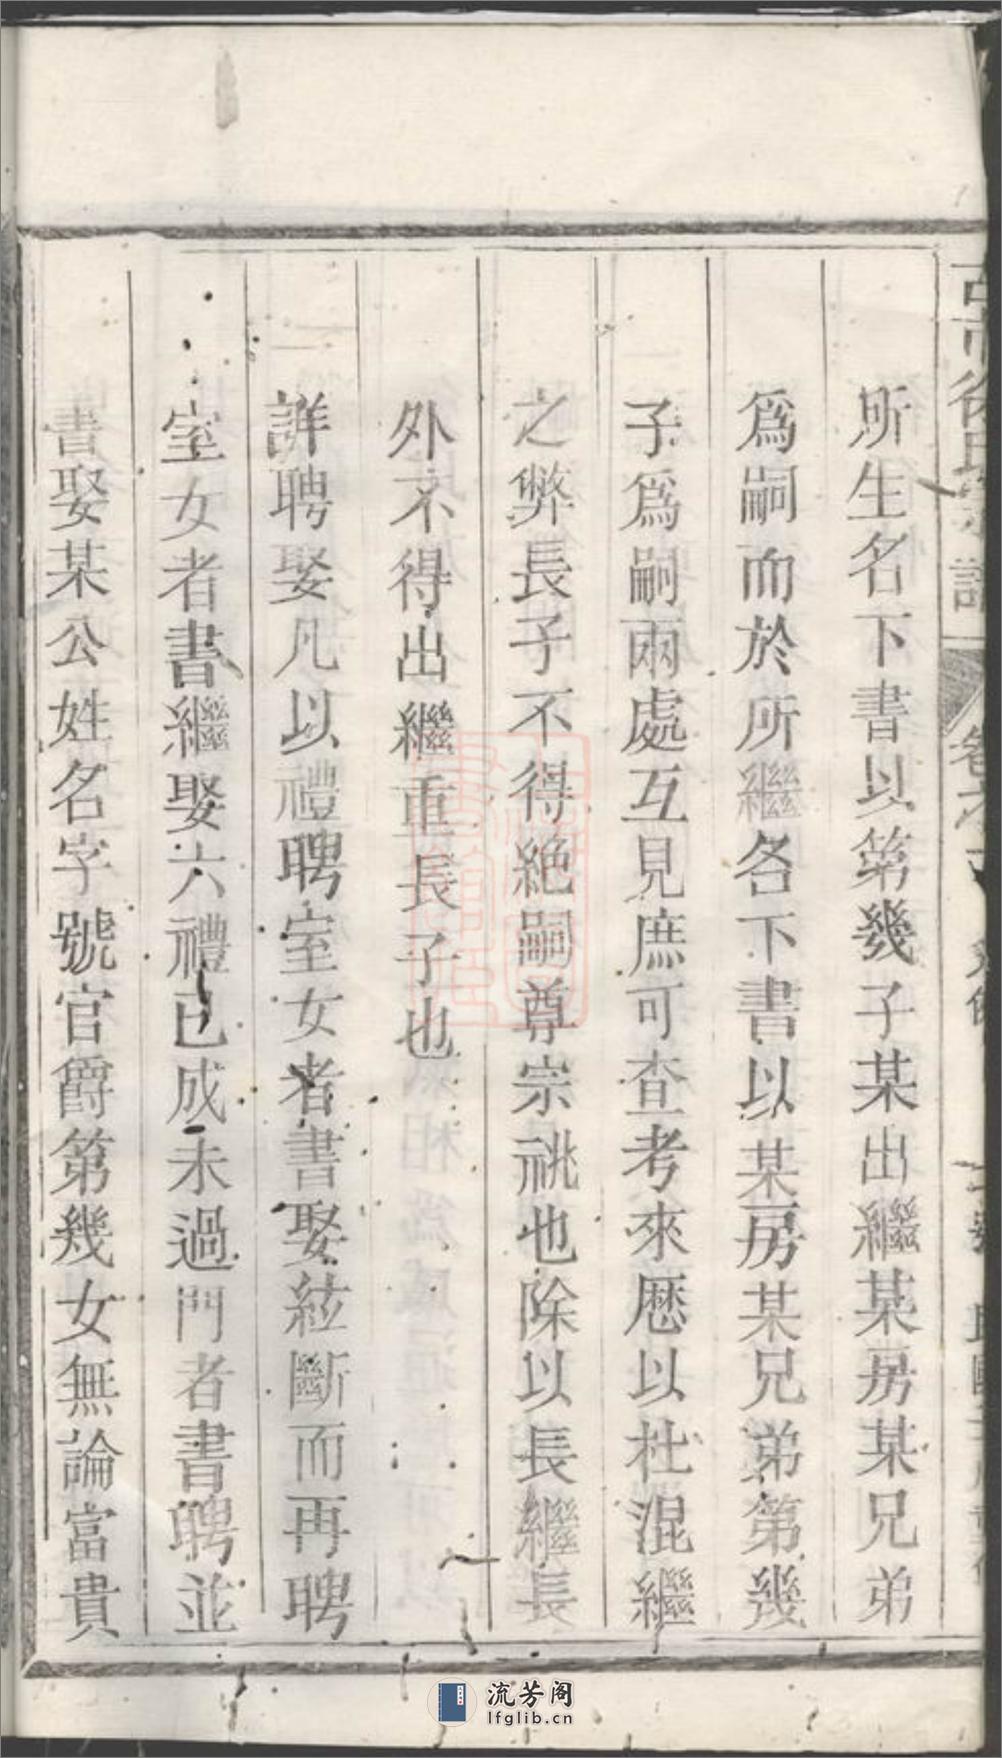 所生名下書以第幾子某出繼某房某兄弟
爲嗣而於所繼各下書以某房某兄弟第幾
子爲嗣兩處互見庶可查考來厯以杜混繼
之弊長子不得絶嗣尊宗祧也除以長繼長
外不得出繼重長子也
詳聘娶凡以禮聘室女者書娶絃斷而再聘
室女者書繼娶六禮已成未過門者書聘並
書娶某公姓名字號官爵第幾女無論富貴
流芳阁
lfglib.cn